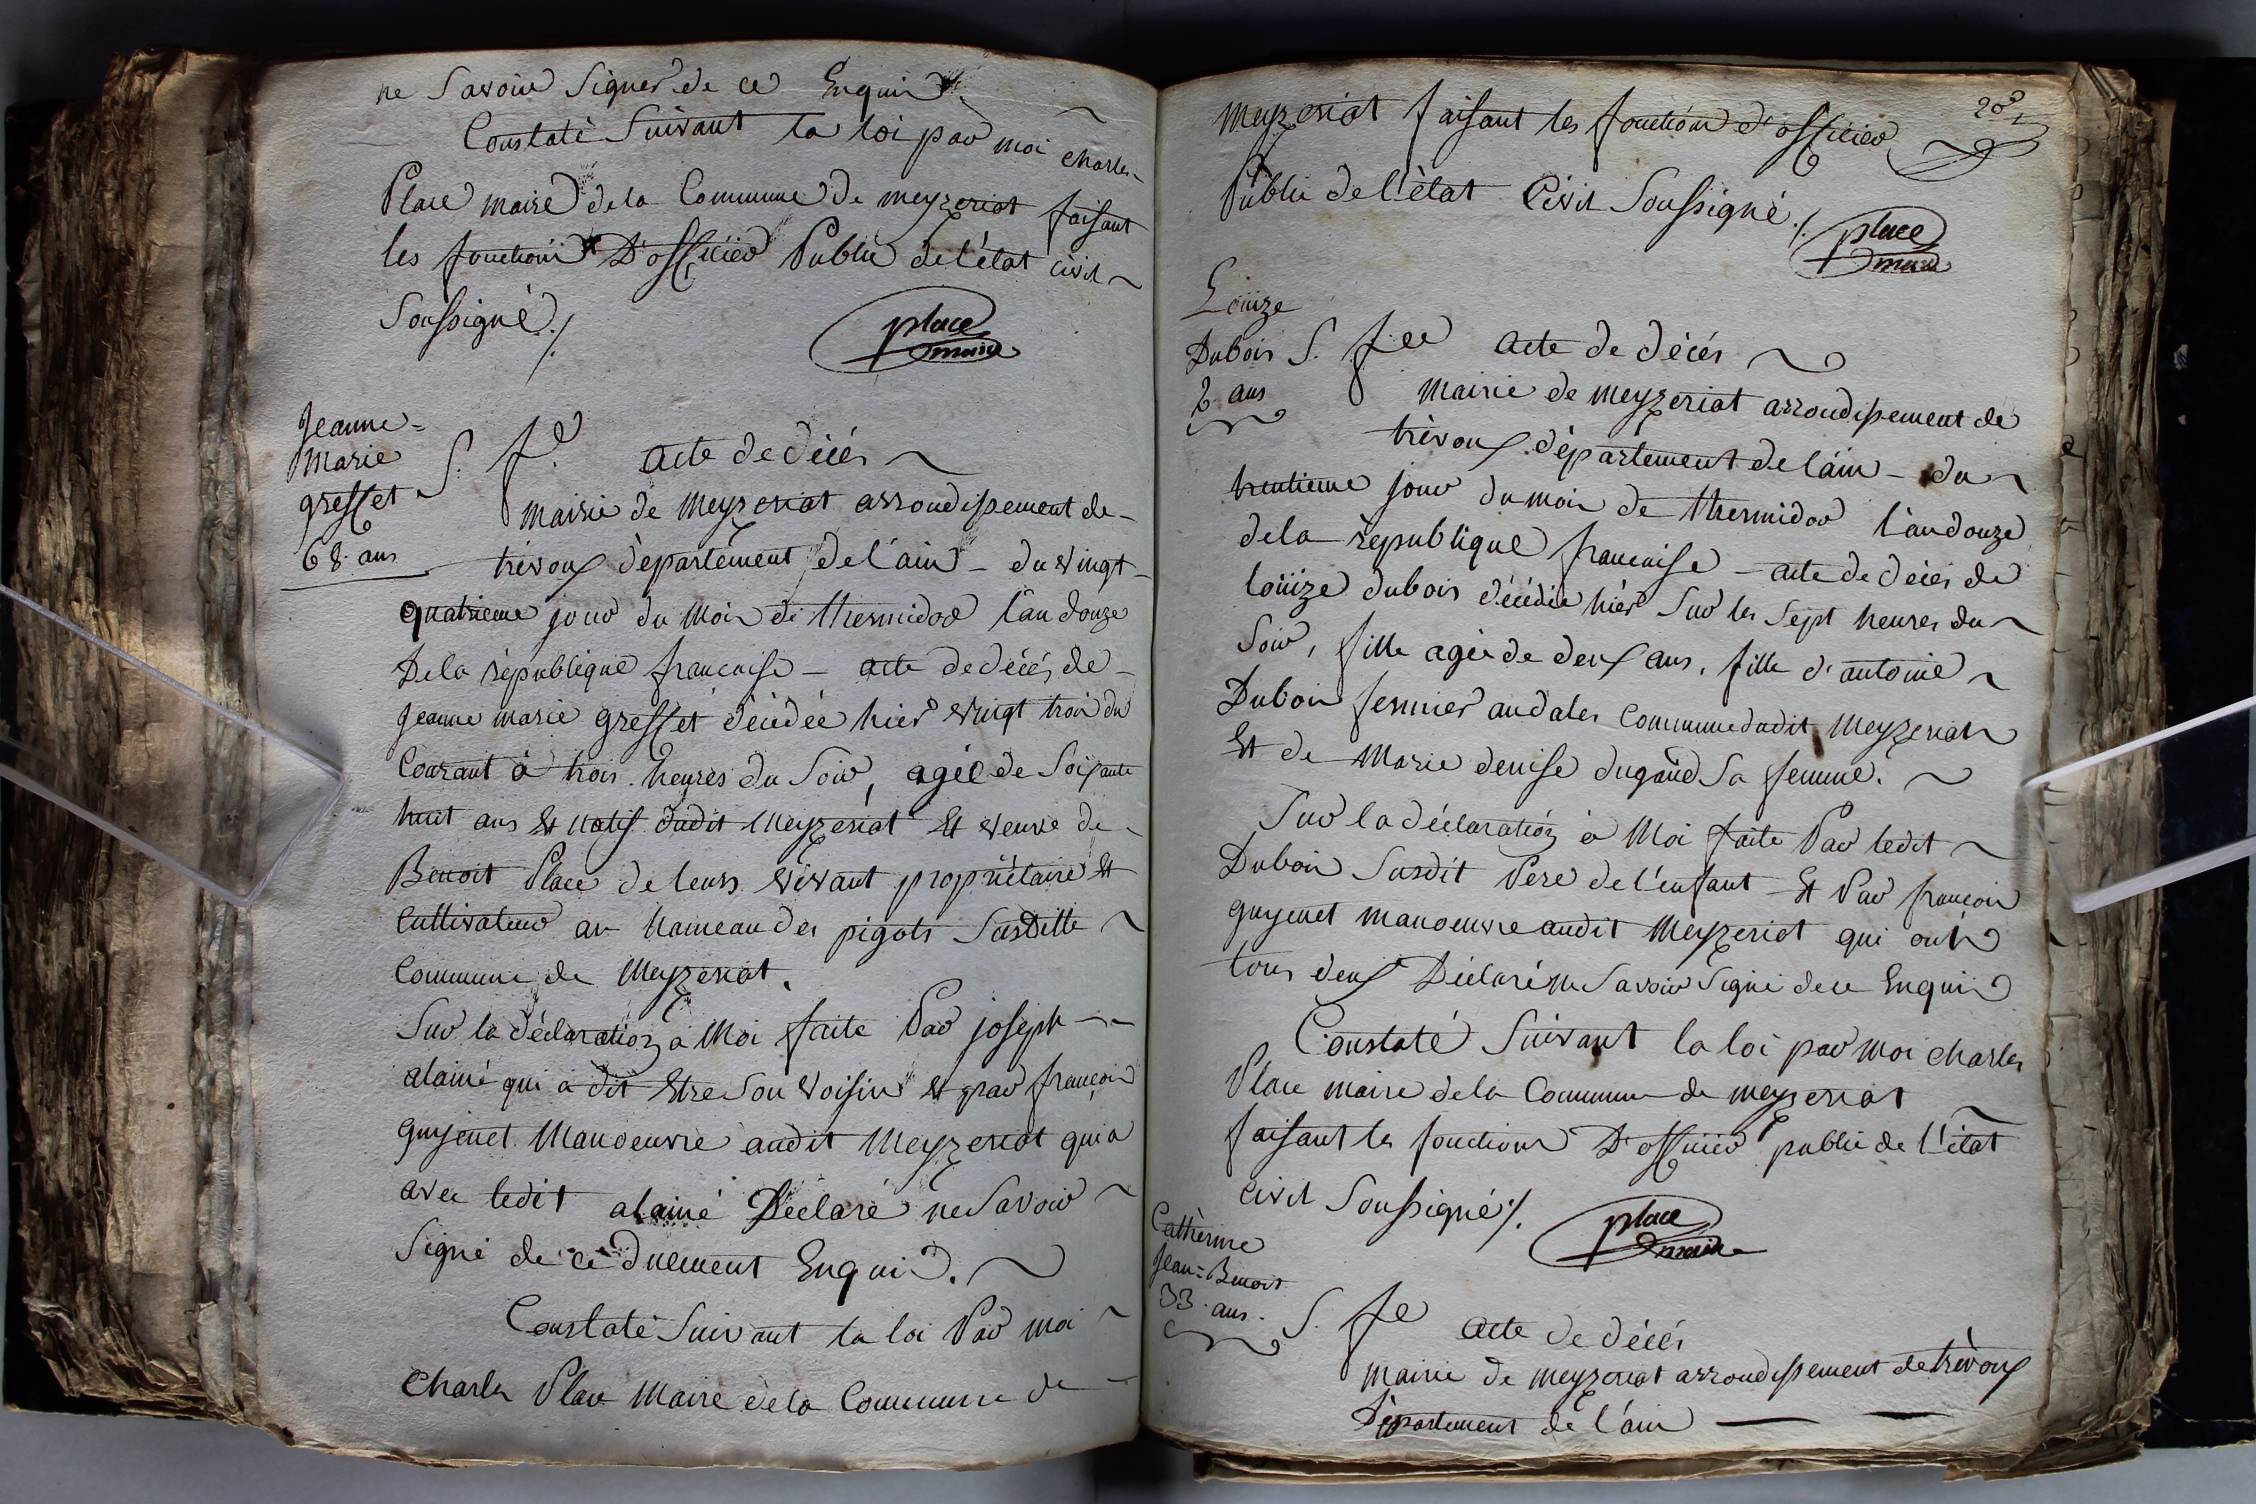 ne Savoir Signer de ce Enquis
Constaté Suivant la loi par moi charles
Place maire dela Commune De meyzeriat faisant
les fonctions D'officier Public de l'état civil
Soussigné ./.
place
maire
Jeanne=
Marie
gresset
68 ans
S. fe acte de décés
mairie de meyzeriat arrondissement de
trévoux département de l'ain - du vingt
quatrieme jour du Mois de thermidor l'an douze
Dela république francaise - acte de décés de
Jeanne marie gresset décédée hier vingt trois du
Courant à trois heures du Soir, agée de Soixante
huit ans Et natif dudit Meyzeriat Et veuve de
Benoit Place de leurs vivant propriétaire Et
Cultivateur au hameau des pigots Susditte
Commune de Meyzeriat.
Sur la déclaration à Moi faite Par joseph
alainé qui a dit Etre Son voisin Et par françois
guyenet Manoeuvre audit Meyzeriat qui a
avec ledit alainé Déclaré ne Savoir
Signé de ce duement Enquis.
Constaté Suivant la loi Par moi
Charles Place Maire dela Commune de
meyzeriat faisant les fonction d'officier
Public de l'état Civil Soussigné ./.
place
maire
Loüize
Dubois
2 ans
S. fee acte de décés
Mairie de meyzeriat arrondissement de
trévoux département de l'ain - du
trentieme jour du mois de thermidor l'an douze
dela république francaise - acte de décés de
loüize dubois décédée hier Sur les Sept heures du
Soir, fille agée de deux ans, fille d'antoine
Dubois fermier audales Commune dudit Meyzeriat
Et de Marie denise dugand Sa femme.
Sur la déclaration à Moi faite Par ledit
Dubois Susdit Pere de l'enfant Et Par françois
guyenet manoeuvre audit Meyzeriat qui ont
tous deux Déclaré ne Savoir Signé de ce Enquis
Constaté Suivant la loi par moi charles
Place maire dela Commune de meyzeriat
faisant les fonctions D'officier public de l'état
civil Soussigné ./.
place
maire
Catherine
Jean=Benoit
33 ans.
S. fe acte de décés
mairie de meyzeriat arrondissement de trévoux
département de l'ain